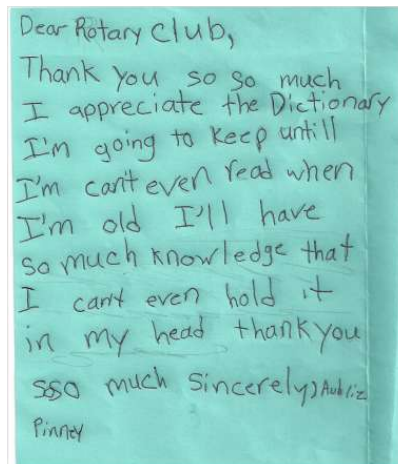 Dear Rotary Club,
Thank you so so much
I appreciate the Dictionary
I'm going to keep untill
I'm can't even read when
I'm old I'll have
so much knowledge that
I cant even hold it
in my head thankyou
sso much Sincerely,
Pinney